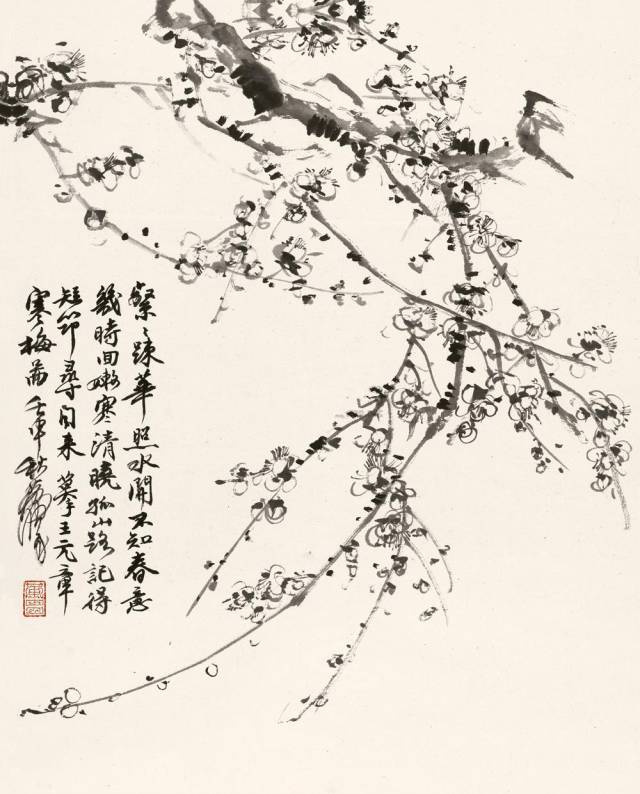 粲〻疎華照水開不知春意
幾時回嫩寒清曉孤山路記得
短筇尋句来摹王元章
寒梅啚壬申秋